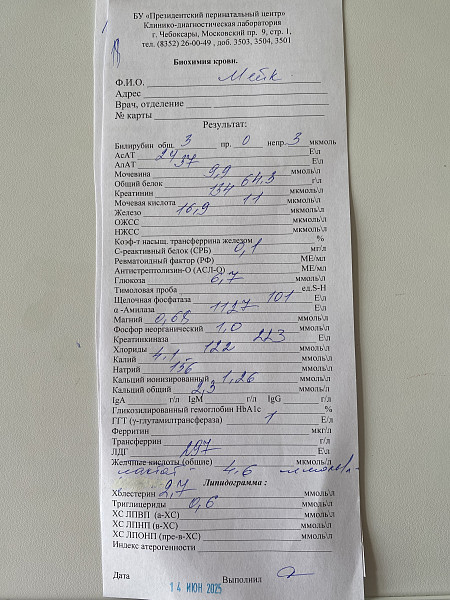 БУ «Президентский перинатальный центр»
Клинико-диагностическая лаборатория
г. Чебоксары, Московский пр. 9, стр. 1,
тел. (8352) 26-00-49 , доб. 3503, 3504, 3501
Биохимия крови.
Ф.И.О. Мейк
Адрес
Врач, отделение
№ карты
Результат:
Билирубин общ. 3 пр. 0 непр. 3 мкмоль
АсАТ 24 Е\л
АлАТ 37 Е\л
Мочевина 9,9 ммоль\л
Общий белок 64,3 г/л
Креатинин 134 ммоль\л
Мочевая кислота 11 ммоль\л
Железо 16,9 ммоль\л
ОЖСС ммоль\л
НЖСС ммоль\л
Коэф-т насыщ. трансферрина железом %
С-реактивный белок (СРБ) 0,1 мг/л
Ревматоидный фактор (РФ) МЕ/мл
Антистрептолизин-О (АСЛ-О) МЕ/мл
Глюкоза 6,7 ммоль/л
Тимоловая проба ед.S-H
Щелочная фосфатаза 101 Е/л
α -Амилаза 1127 Е\л
Магний 0,68 ммоль\л
Фосфор неорганический 1,0 ммоль/л
Креатинкиназа 223 Е/л
Хлориды 122 ммоль\л
Калий 4,1 ммоль\л
Натрий 156 ммоль\л
Кальций ионизированный 1,26 ммоль\л
Кальций общий 2,3 ммоль\л
IgA г/л IgM г/л IgG г/л
Гликозилированный гемоглобин HbA1c %
ГГТ (γ-глутамилтрансфераза) 1 Е/л
Ферритин мкг/л
Трансферрин г/л
ЛДГ 297 Е/л
Желчные кислоты (общие) мкмоль/л
лактат 4,6 ммоль/л
Липидограмма :
Холестерин 2,7 ммоль/л
Триглицериды 0,6 ммоль/л
ХС ЛПВП (а-ХС) ммоль/л
ХС ЛПНП (в-ХС) ммоль/л
ХС ЛПОНП (пре-в-ХС) ммоль/л
Индекс атерогенности
Дата Выполнил
14 ИЮН 2025